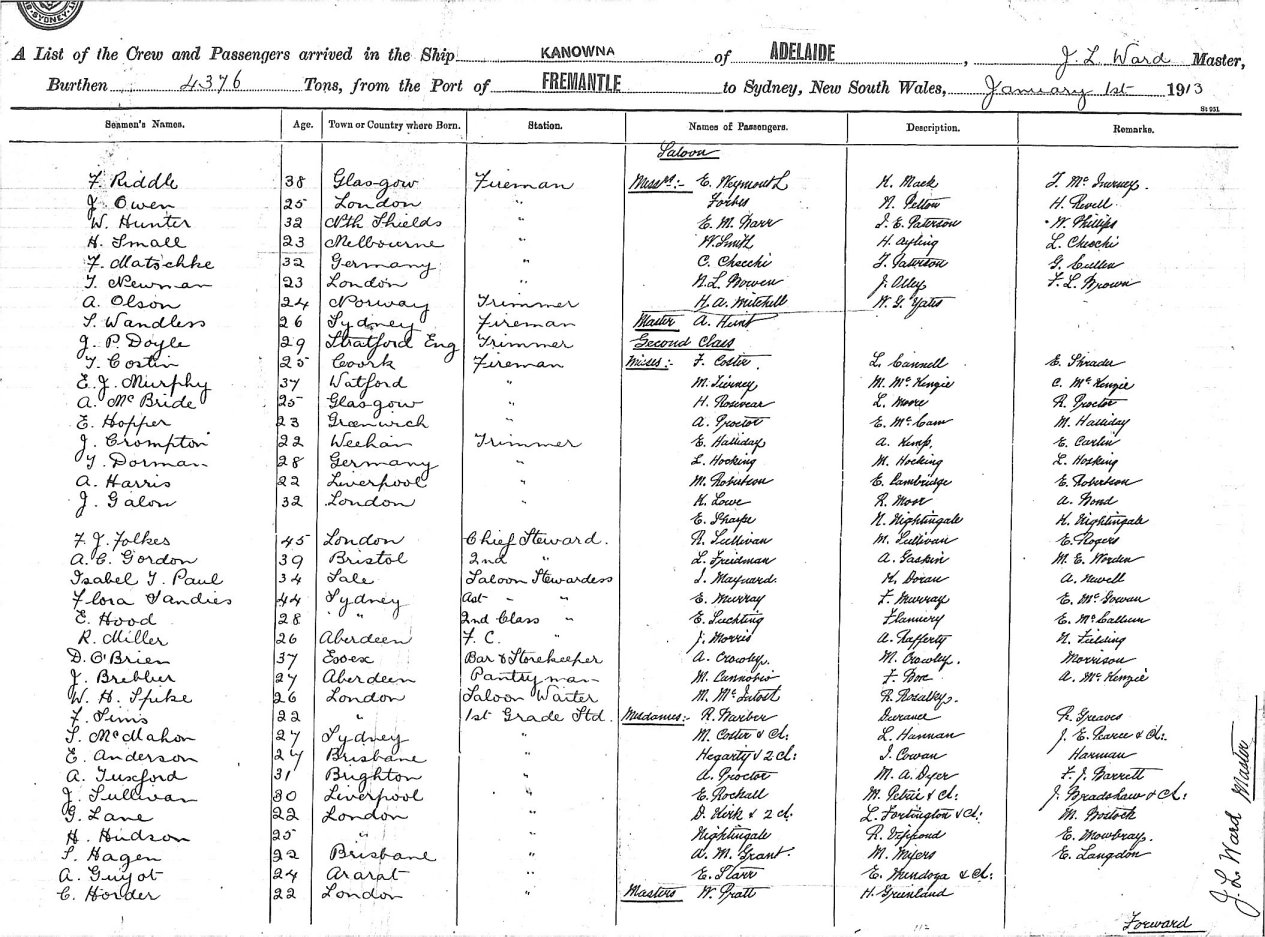 SYDNEY
A List of the Crew and Passengers arrived in the Ship KANOWNA of ADELAIDE, J. L. Ward Master,
Burthen 4376 Tons, from the Port of FREMANTLE to Sydney, New South Wales, January 1st 1913
St 951
Seamen's Names. Age. Town or Country where Born. Station. Names of Passengers. Description. Remarks.
Saloon
F. Riddle 38 Glasgow Fireman Messrs:- E. Weymouth K. Mack
J. Owen 25 London " Forbes N. Pellow H. Revell
W. Hunter 32 Nth Shields " E. M. Barr J. E. Paterson W. Phillips
H. Small 23 Melbourne " W. Smith H. Ayling L. Checchi
F. Matschke 32 Germany " C. Checchi J. Paterson G. Cullen
T. Newman 23 London " N. L. Bowen J. Alley F. L. Brown
A. Olson 24 Norway Trimmer H. A. Mitchell W. G. Yates
S. Wandless 26 Sydney Fireman Master A. Hunt
J. P. Doyle 29 Stratford Eng Trimmer Second Class
T. Costin 25 Coork Fireman Misses:- F. Coster L. Cannell E. Shrader
E. J. Murphy 37 Watford " M. Tierney M. McKenzie C. McKenzie
A. McBride 25 Glasgow " H. Rosivear L. Moore R. Proctor
E. Hopper 23 Greenwich " A. Proctor E. McCam M. Halliday
J. Crompton 22 Weehan Trimmer E. Halliday A. Kemp E. Carlin
T. Dorman 28 Germany " L. Hocking M. Hocking L. Hosking
A. Harris 22 Liverpool " M. Robertson E. Cambridge E. Robertson
J. Galon 32 London " K. Lowe R. Moor A. Bond
E. Sharpe N. Nightingale K. Nightingale
F. J. Folkes 45 London Chief Steward. R. Sullivan M. Sullivan E. Rogers
A. C. Gordon 39 Bristol 2nd " L. Freidman A. Gaskin M. E. Worden
Isabel T. Paul 34 Sale Saloon Stewardess J. Maynard K. Doran A. Newell
Flora Sandies 44 Sydney Ast " " E. Murray F. Murray E. McGowan
E. Hood 28 " 2nd Class " E. Luchting Flannery E. McCallum
R. Miller 26 Aberdeen F. C. " J. Morris A. Rafferty N. Fielding
D. O'Brien 37 Essex Bar & Storekeeper A. Crowley M. Crowley. Morrison
J. Brebber 27 Aberdeen Pantryman M. Cannobio A. McKenzie
W. H. Spike 26 London Saloon Waiter M. McIntosh R. Rosalky
F. Sims 22 " 1st Grade Std. Mesdames:- R. Barber Durance R. Greaves
S. McMahon 27 Sydney " M. Coster & Ch: L. Hannan J. E. Pearce & Ch:
E. Anderson 27 Brisbane " Hegarty & 2 Ch: J. Cowan Harman
A. Tuxford 31 Brighton " A. Proctor M. A. Dyer F. J. Barrett
J. Sullivan 30 Liverpool " E. Rockall M. Petrie & Ch: J. Bradshaw & Ch:
G. Lane 22 London " D. Kirk & 2 Ch. L. Fortington & Ch: M. Bostock
H. Hudson 25 " " Nightingale E. Mowbray.
S. Hagen 22 Brisbane " A. M. Grant. M. Myers E. Langdon
A. Guyot 24 Ararat " E. Starr E. Mendoza & Ch:
C. Horder 22 London " Masters W. Pratt H. Greenland
J. L. Ward Master
Forward